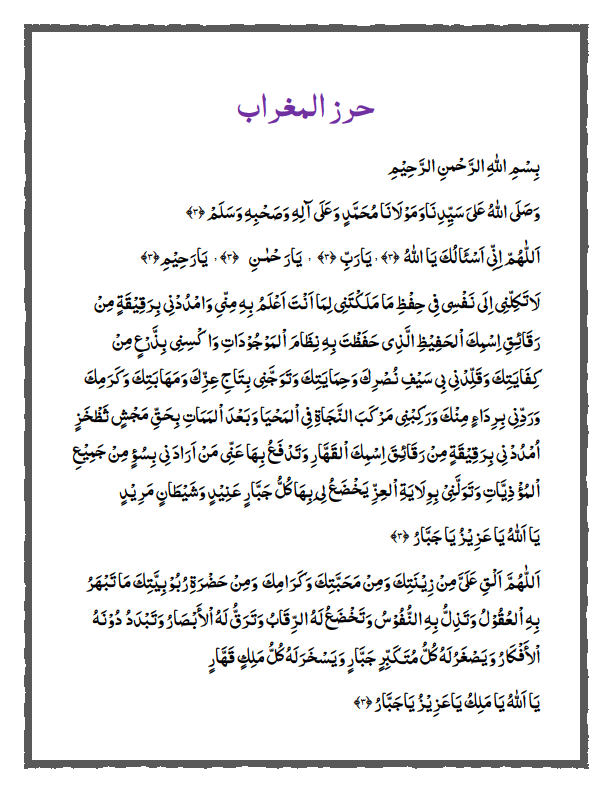 حرز المغراب
بِسْمِ اللهِ الرَّحْمٰنِ الرَّحِيْمِ
وَصَلَى اللهُ عَلىَ سَيِّدِنَاوَمَوْلَانَا مُحَمَّدٍ وَعَلَى آلِهِ وَصَحْبِهِ وَسَلَّمْ ﴿٣﴾
اَللّٰهُمَّ اِنِّى اَسْئَالُكَ يَا اَللهُ ﴿٣﴾ ، يَارَبِّ ﴿٣﴾ ، يَارَحْمٰنِ ﴿٣﴾ ، يَارَحِيْمِ ﴿٣﴾
لَاتَكِلْنِى اِلَى نَفْسِى فِى حِفْظِ مَا مَلَكْتَنِى لِمَا اَنْتَ اَعْلَمُ بِهِ مِنِّى وَامْدُدْنِى بِرَقِيْقَةٍ مِنْ
رَقَائِقِ اِسْمِكَ الْحَفِيْظِ الَّذِى حَفَظْتَ بِهِ نِظَامَ الْمَوْجُوْدَاتِ وَاكْسِنِى بِذَّرْعٍ مِنْ
كِفَايَتِكَ وَقَلِّدْنِى بِى سَيْفِ نُصْرِكَ وَحِمَايَتِكَ وَتَوَجَّنِى بِتَاجِ عِزِّكَ وَمَهَابَتِكَ وَكَرَمِكَ
وَرَدِّنِى بِرِدَاءٍ مِنْكَ وَرَكِبْنِى مَرْكَبَ النَّجَاةِ فِى الْمَحْيَا وَبَعْدَ الْمَمَاتِ بِحَقِّ فَجَشٍ ثَظْخَزٍ
اُمْدُدْنِى بِرَقِيْقَةٍ مِنْ رَقَائِقَ اِسْمِكَ الْقَهَّارِ وَتَدْفَعُ بِهَا عَنِّى مَنْ اَرَادَنِى بِسُؤٍ مِنْ جَمِيْعِ
الْمُؤْذِيَّاتِ وَتَوَلَّنِىْ بِوِلَايَةِ الْعِزِّ يَخْضَعُ لِى بِهَا كُلُّ جَبَّارٍ عَنِيْدٍ وَشَيْطَانٍ مَرِيْدٍ
يَا اَللهُ يَا عَزِيْزُ يَا جَبَّارُ ﴿٣﴾
اَللّٰهُمَّ اَلْقِ عَلَىَّ مِنْ زِيْنَتِكَ وَمِنْ مَحَبَّتِكَ وَكَرَامِكَ وَمِنْ حَضْرَةِ رُبُوْبِيَّتِكَ مَا تَبْهَرُ
بِهِ الْعُقُوْلُ وَتَذِلُّ بِهِ النُّفُوْسُ وَتَخْضَعُ لَهُ الرِّقَابُ وَتَرَقُّ لَهُ الْأَبْصَارُ وَتَبَدَدُ دُوْنَهُ
الْأَفْكَارُ وَيَصْغَرُلَهُ كُلُّ مُتَكَبِّرٍ جَبَّارٍ وَيَسْخَرَلَهُ كُلُّ مَلِكٍ قَهَّارٍ
يَا اَللهُ يَا مَلِكُ يَاعَزِيْزُ يَاجَبَّارُ ﴿٣﴾